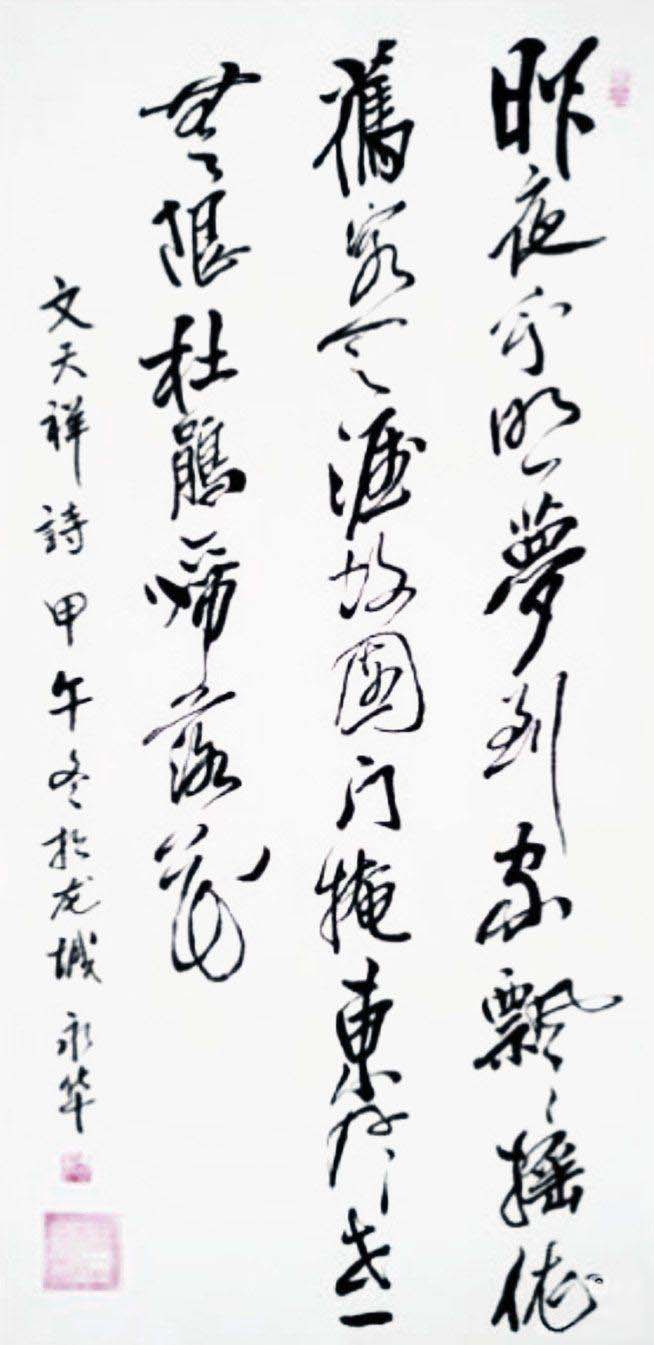 昨夜分明夢到家飄搖依
舊客天涯故園门掩東风老
無限杜鵑啼落花
文天祥詩 甲午冬於龙城 永华